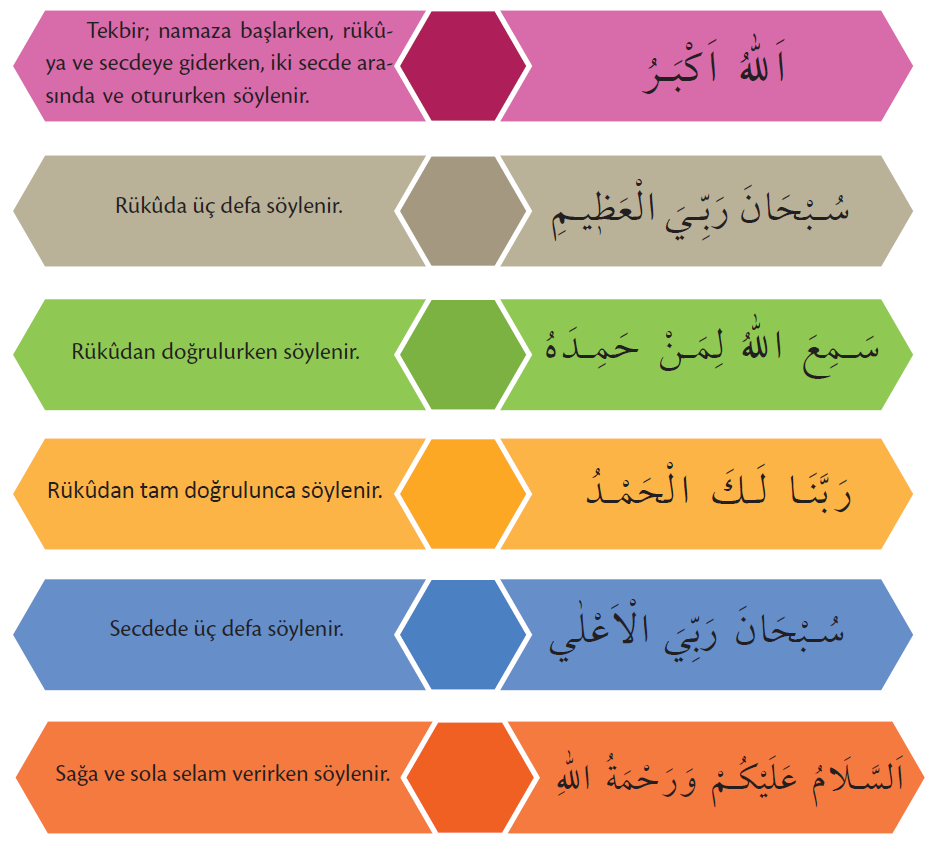 Tekbir; namaza başlarken, rükû-
ya ve secdeye giderken, iki secde ara-
sında ve otururken söylenir.
اَللّٰهُ اَكْبَرُ
Rükûda üç defa söylenir.
سُبْحَانَ رَبِّيَ الْعَظٖيمِ
Rükûdan doğrulurken söylenir.
سَمِعَ اللّٰهُ لِمَنْ حَمِدَهُ
Rükûdan tam doğrulunca söylenir.
رَبَّنَا لَكَ الْحَمْدُ
Secdede üç defa söylenir.
سُبْحَانَ رَبِّيَ الْاَعْلٰي
Sağa ve sola selam verirken söylenir.
اَلسَّلَامُ عَلَيْكُمْ وَرَحْمَةُ اللّٰهِ